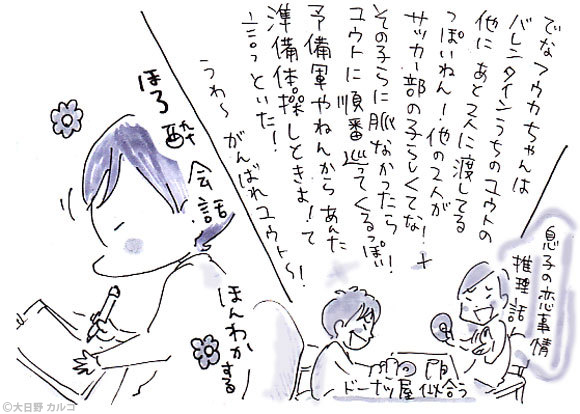 でな フウカちゃんは
バレンタインうちのユウトの
他に あと2人に渡してる
っぽいねん！他の2人が
サッカー部の子らしくてな！
その子らに脈なかったら！
ユウトに順番巡ってくるっぽい！
予備軍やねんからあんた
準備体操しときよ！て
言っといた！
うわ〜 がんばれユウト〜！
息子の恋事情
推理話
ほろ酔
会話
ほんわかする
ドーナッツ屋似合う
©大日野 カルコ